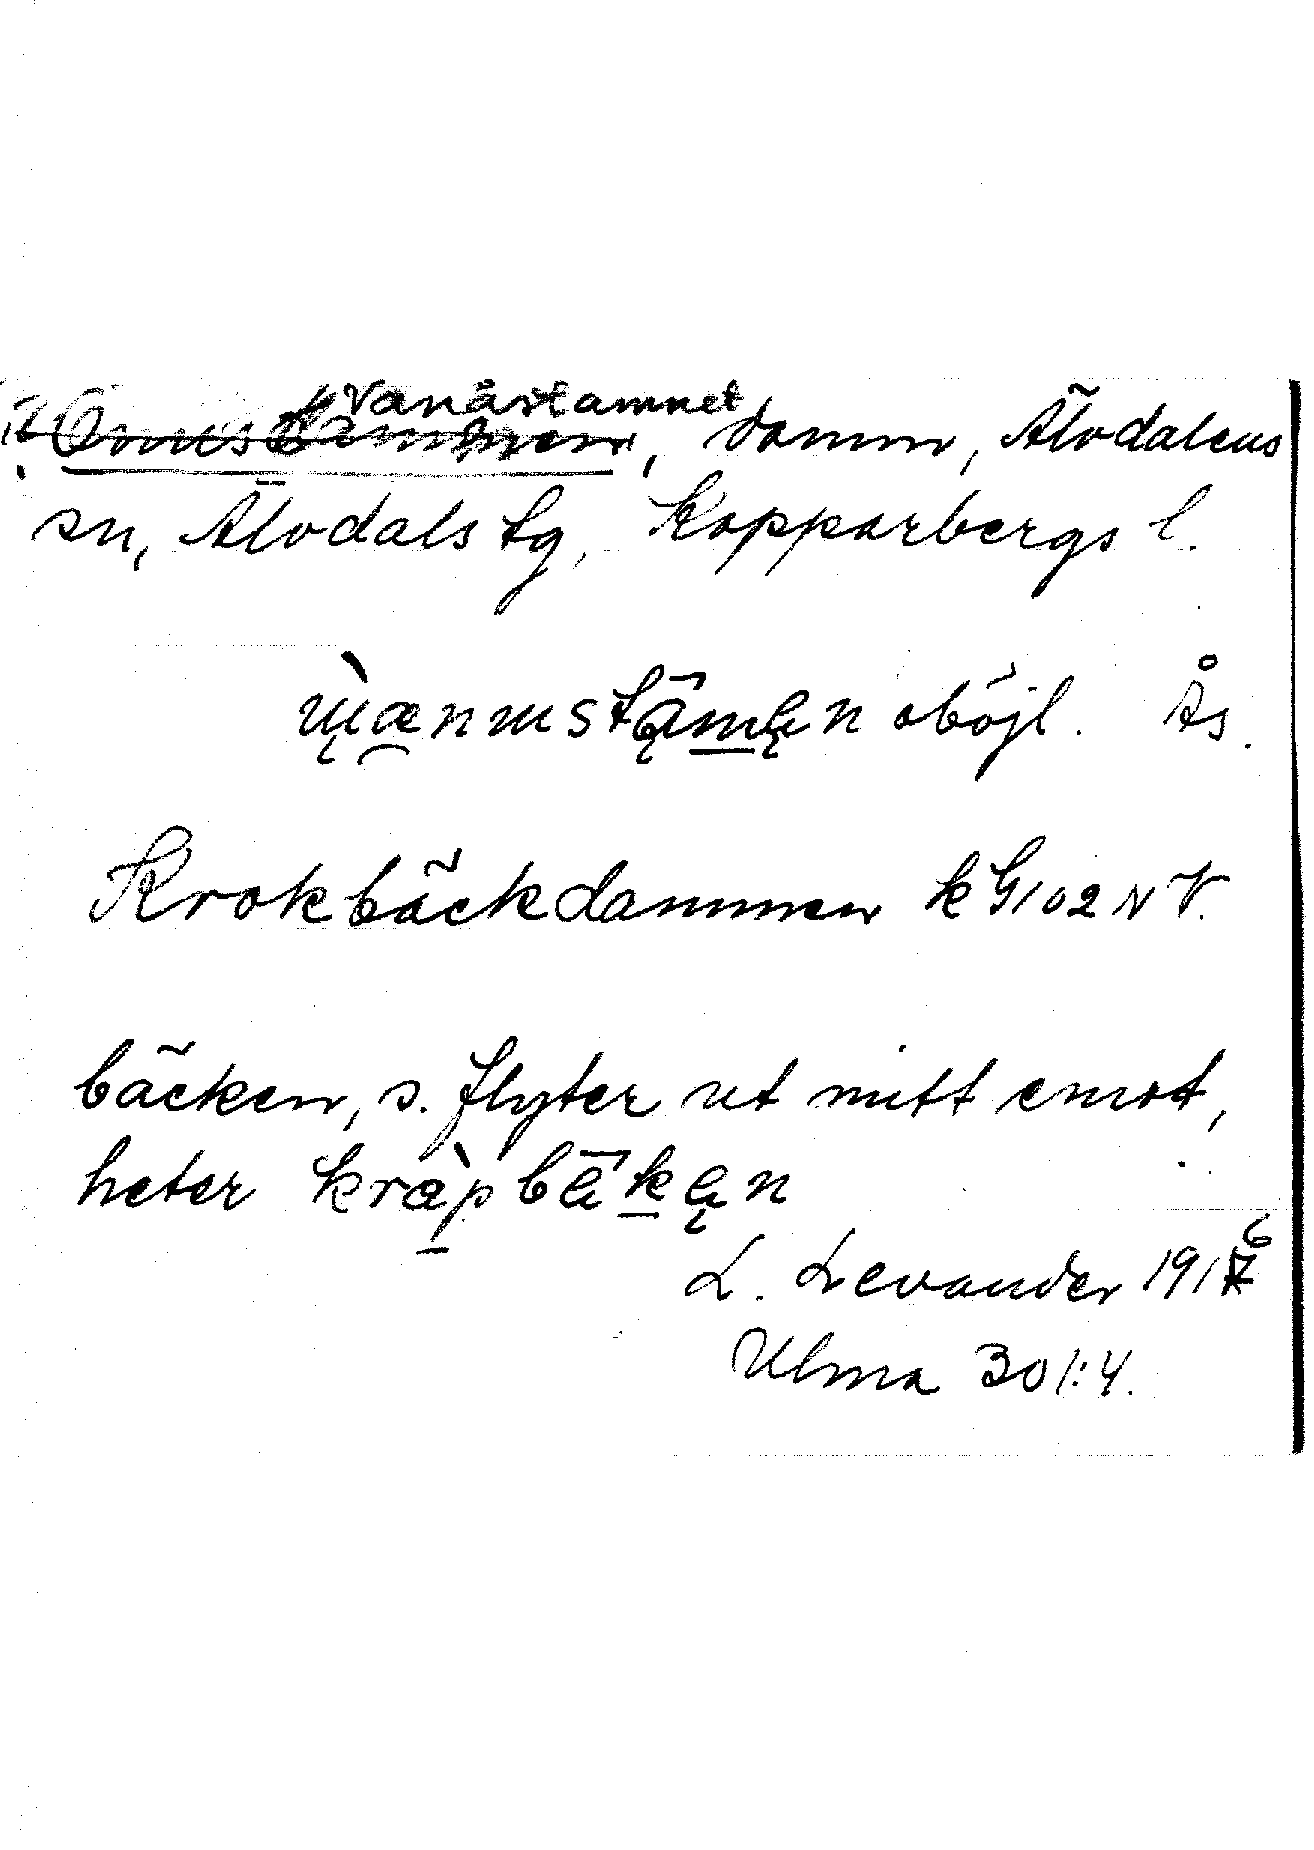 Vanåstamnet
damm, Älvdalens
sn, Älvdals tg, Kopparbergs l.
oböjl. Ås.
Krokbäckdammen k G102 NV.
bäcken, s. flyter ut mitt emot,
heter kràpbäkän
L. Levander 1916
Ulma 301:4.